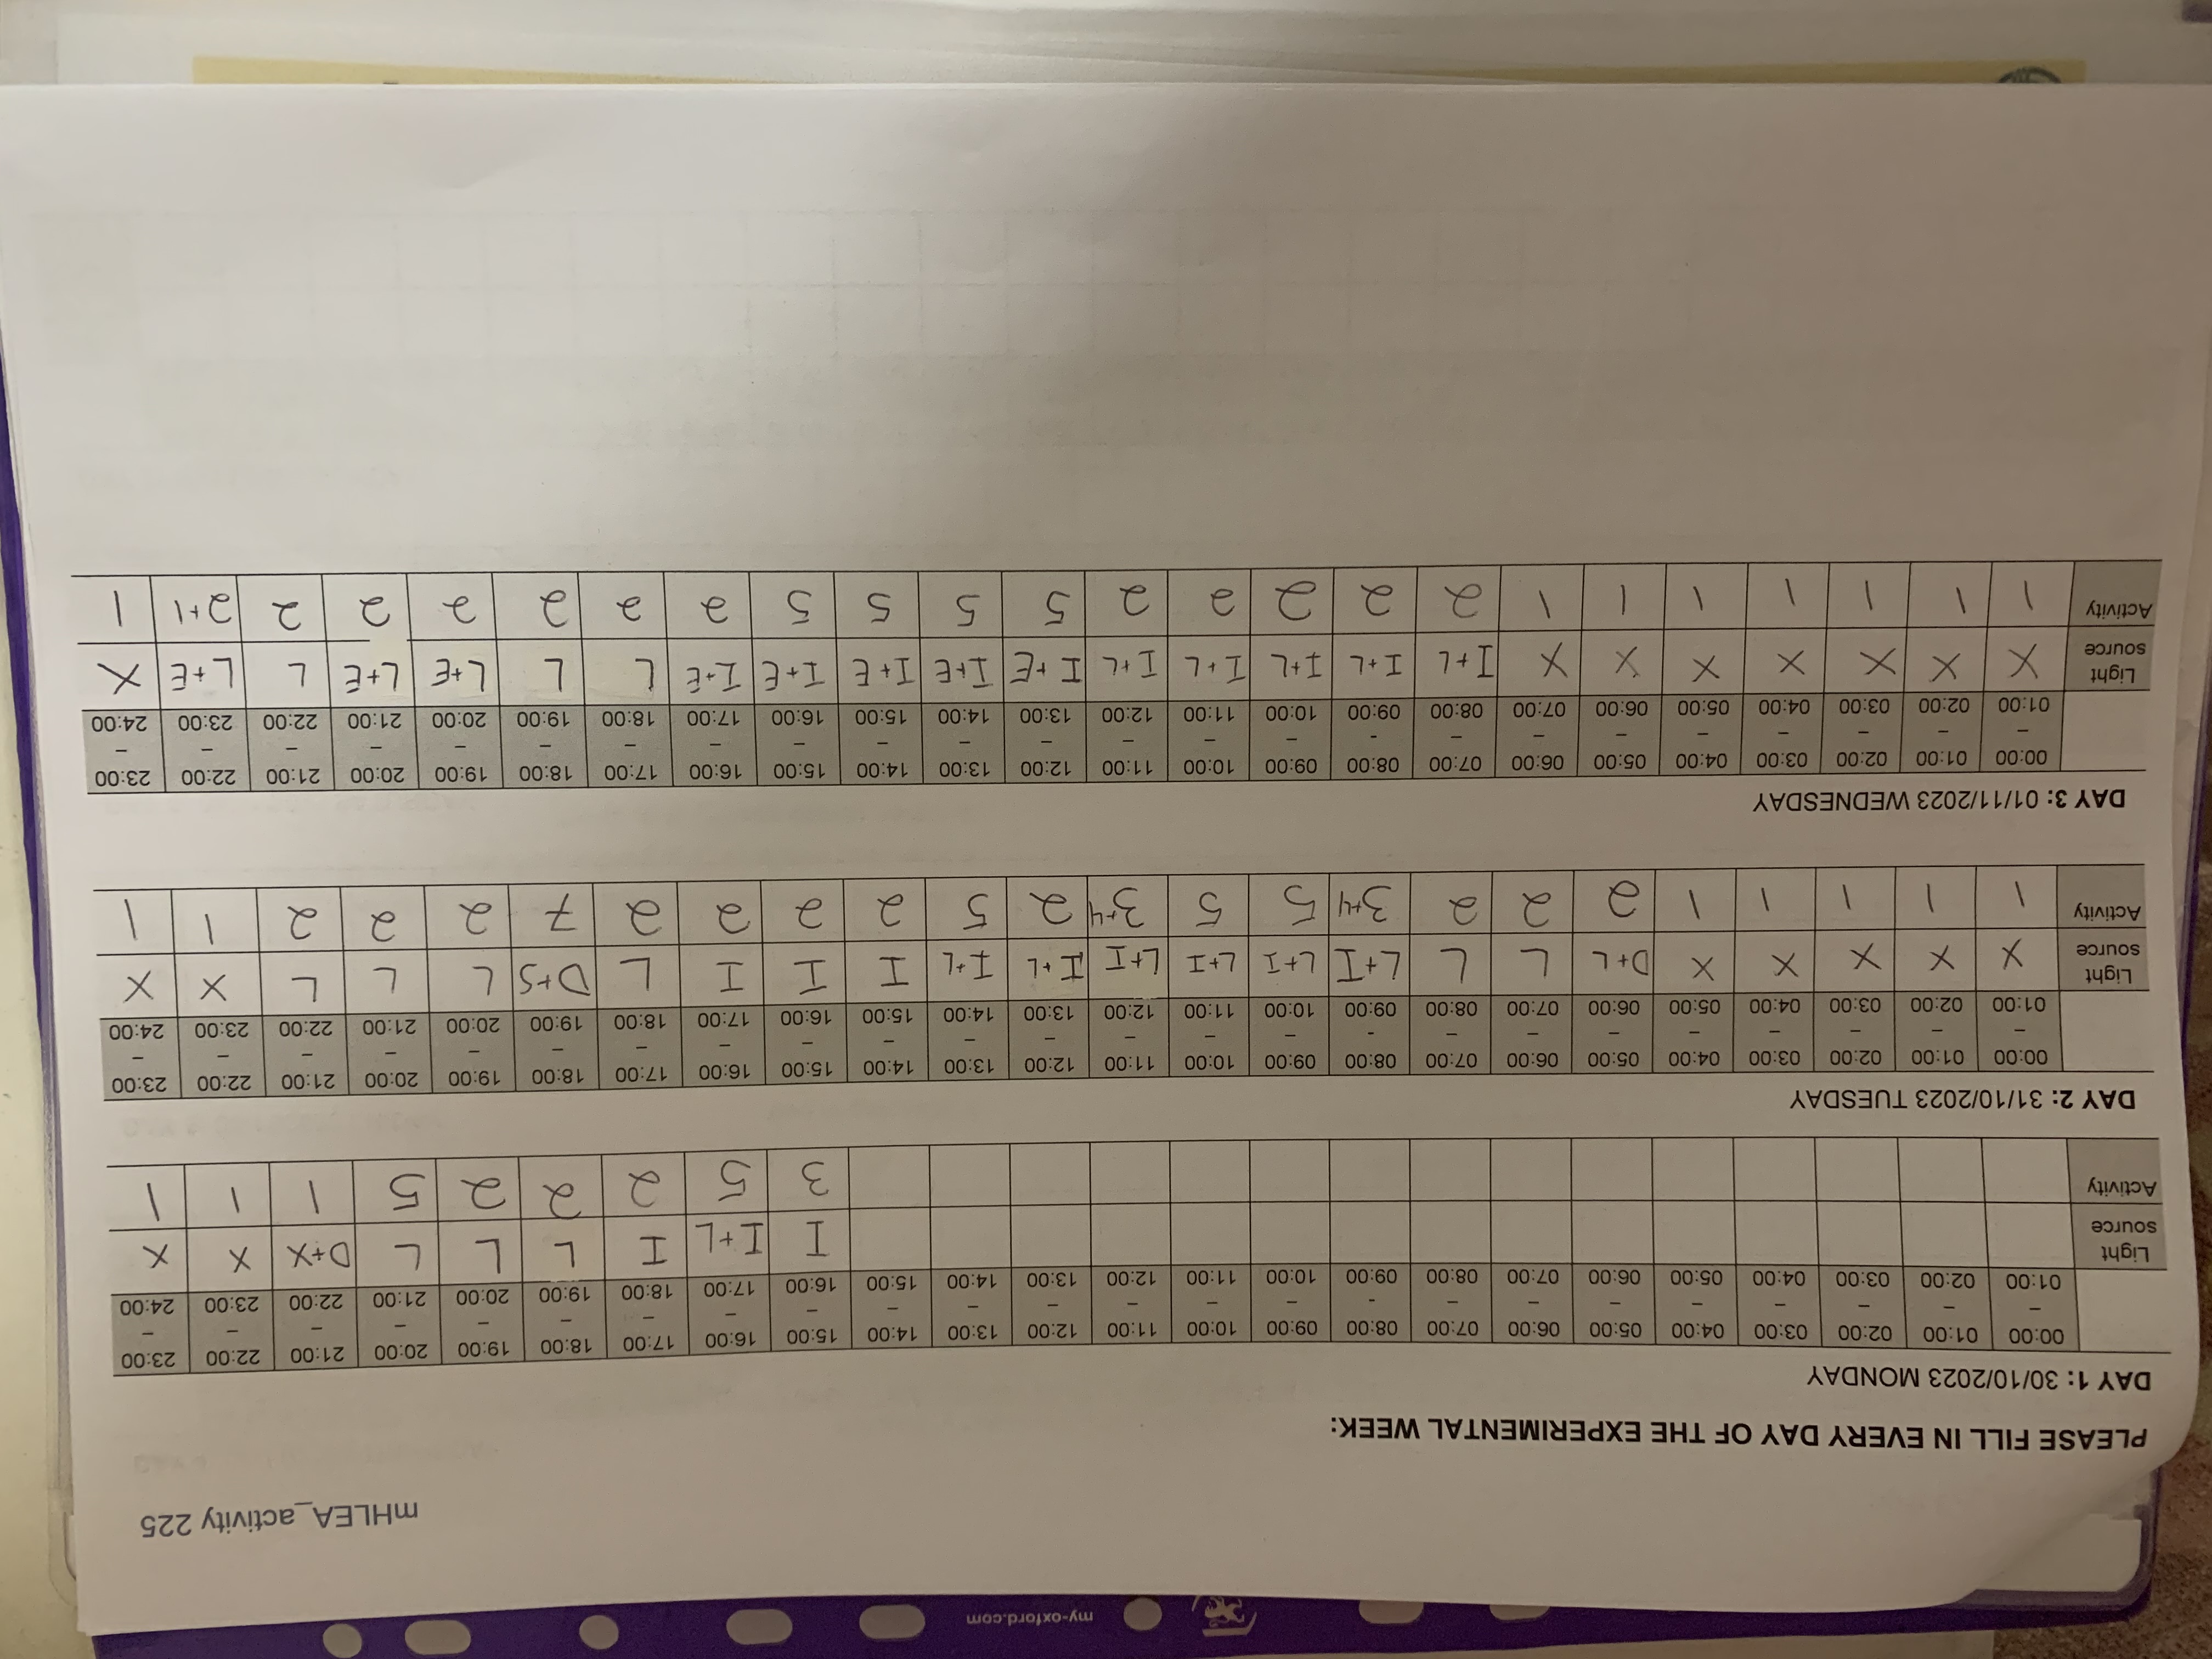 my-oxford.com
mHLEA_activity 225
PLEASE FILL IN EVERY DAY OF THE EXPERIMENTAL WEEK:
DAY 1: 30/10/2023 MONDAY
00:00 – 01:00 01:00 – 02:00 02:00 – 03:00 03:00 – 04:00 04:00 – 05:00 05:00 – 06:00 06:00 – 07:00 07:00 – 08:00 08:00 - 09:00 09:00 – 10:00 10:00 – 11:00 11:00 – 12:00 12:00 – 13:00 13:00 – 14:00 14:00 – 15:00 15:00 – 16:00 16:00 – 17:00 17:00 – 18:00 18:00 – 19:00 19:00 – 20:00 20:00 – 21:00 21:00 – 22:00 22:00 – 23:00 23:00 – 24:00
Light source I I+L I L L L D+X X X
Activity 3 5 2 2 2 5 1 1 1
DAY 2: 31/10/2023 TUESDAY
00:00 – 01:00 01:00 – 02:00 02:00 – 03:00 03:00 – 04:00 04:00 – 05:00 05:00 – 06:00 06:00 – 07:00 07:00 – 08:00 08:00 - 09:00 09:00 – 10:00 10:00 – 11:00 11:00 – 12:00 12:00 – 13:00 13:00 – 14:00 14:00 – 15:00 15:00 – 16:00 16:00 – 17:00 17:00 – 18:00 18:00 – 19:00 19:00 – 20:00 20:00 – 21:00 21:00 – 22:00 22:00 – 23:00 23:00 – 24:00
Light source X X X X X D+L L L L+I L+I L+I L+I I+L I+L I I I L D+S L L L X X
Activity 1 1 1 1 1 2 2 2 3+4 5 5 3+4 2 5 2 2 2 2 7 2 2 2 1 1
DAY 3: 01/11/2023 WEDNESDAY
00:00 – 01:00 01:00 – 02:00 02:00 – 03:00 03:00 – 04:00 04:00 – 05:00 05:00 – 06:00 06:00 – 07:00 07:00 – 08:00 08:00 - 09:00 09:00 – 10:00 10:00 – 11:00 11:00 – 12:00 12:00 – 13:00 13:00 – 14:00 14:00 – 15:00 15:00 – 16:00 16:00 – 17:00 17:00 – 18:00 18:00 – 19:00 19:00 – 20:00 20:00 – 21:00 21:00 – 22:00 22:00 – 23:00 23:00 – 24:00
Light source X X X X X X X I+L I+L I+L I+L I+L I+E I+E I+E I+E I+E L L L+E L+E L L+E X
Activity 1 1 1 1 1 1 1 2 2 2 2 2 5 5 5 5 2 2 2 2 2 2 2+1 1